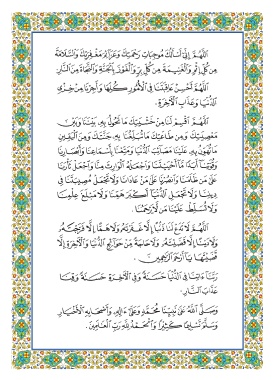 اللَّهُمَّ إِنِّي أَسْأَلُكَ مُوجِبَاتِ رَحْمَتِكَ وَعَزَائِمَ مَغْفِرَتِكَ وَالسَّلَامَةَ
مِنْ كُلِّ إِثْمٍ وَالْغَنِيمَةَ مِنْ كُلِّ بِرٍّ وَالْفَوْزَ بِالْجَنَّةِ وَالنَّجَاةَ مِنَ النَّارِ
اللَّهُمَّ أَحْسِنْ عَاقِبَتَنَا فِي الْأُمُورِ كُلِّهَا وَأَجِرْنَا مِنْ خِزْيِ
الدُّنْيَا وَعَذَابِ الْآخِرَةِ.
اللَّهُمَّ اقْسِمْ لَنَا مِنْ خَشْيَتِكَ مَا تَحُولُ بِهِ بَيْنَنَا وَبَيْنَ
مَعْصِيَتِكَ وَمِنْ طَاعَتِكَ مَا تُبَلِّغُنَا بِهِ جَنَّتَكَ وَمِنَ الْيَقِينِ
مَا تُهَوِّنُ بِهِ عَلَيْنَا مَصَائِبَ الدُّنْيَا وَمَتِّعْنَا بِأَسْمَاعِنَا وَأَبْصَارِنَا
وَقُوَّتِنَا أَبَدًا مَا أَحْيَيْتَنَا وَاجْعَلْهُ الْوَارِثَ مِنَّا وَاجْعَلْ ثَأْرَنَا
عَلَى مَنْ ظَلَمَنَا وَانْصُرْنَا عَلَى مَنْ عَادَانَا وَلَا تَجْعَلْ مُصِيبَتَنَا فِي
دِينِنَا وَلَا تَجْعَلِ الدُّنْيَا أَكْبَرَ هَمِّنَا وَلَا مَبْلَغَ عِلْمِنَا
وَلَا تُسَلِّطْ عَلَيْنَا مَنْ لَا يَرْحَمُنَا.
اللَّهُمَّ لَا تَدَعْ لَنَا ذَنْبًا إِلَّا غَفَرْتَهُ وَلَا هَمًّا إِلَّا فَرَّجْتَهُ
وَلَا دَيْنًا إِلَّا قَضَيْتَهُ وَلَا حَاجَةً مِنْ حَوَائِجِ الدُّنْيَا وَالْآخِرَةِ إِلَّا
قَضَيْتَهَا يَا أَرْحَمَ الرَّاحِمِينَ.
رَبَّنَا ءَاتِنَا فِي الدُّنْيَا حَسَنَةً وَفِي الْآخِرَةِ حَسَنَةً وَقِنَا
عَذَابَ النَّارِ.
وَصَلَّى اللهُ عَلَى نَبِيِّنَا مُحَمَّدٍ وَعَلَى ءَالِهِ وَأَصْحَابِهِ الْأَخْيَارِ
وَسَلَّمَ تَسْلِيمًا كَثِيرًا وَالْحَمْدُ لِلَّهِ رَبِّ الْعَالَمِينَ.